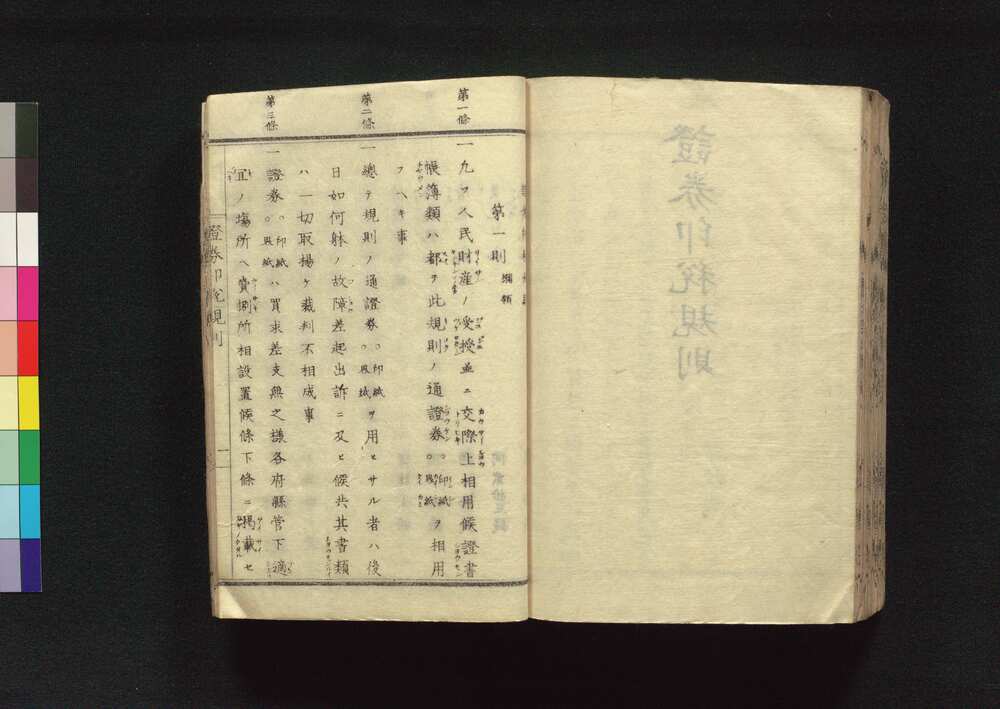 第一則 綱領
第一條
一 凡ソ人民財産ノ受授並ニ交際上相用候證書
帳簿類ハ都テ此規則ノ通證券。印紙。界紙ヲ相用
フヘキ事
第二條
一 總テ規則ノ通證券。印紙。界紙ヲ用ヒサル者ハ後
日如何躰ノ故障差起出訴ニ及ヒ候共其書類
ハ一切取揚ケ裁判不相成事
第三條
一 證券。印紙。界紙ハ買求差支無之様各府縣管下適
宜ノ場所ヘ賣捌所相設置候條下條ニ掲載セ
證券印税規則
一
證券印税規則